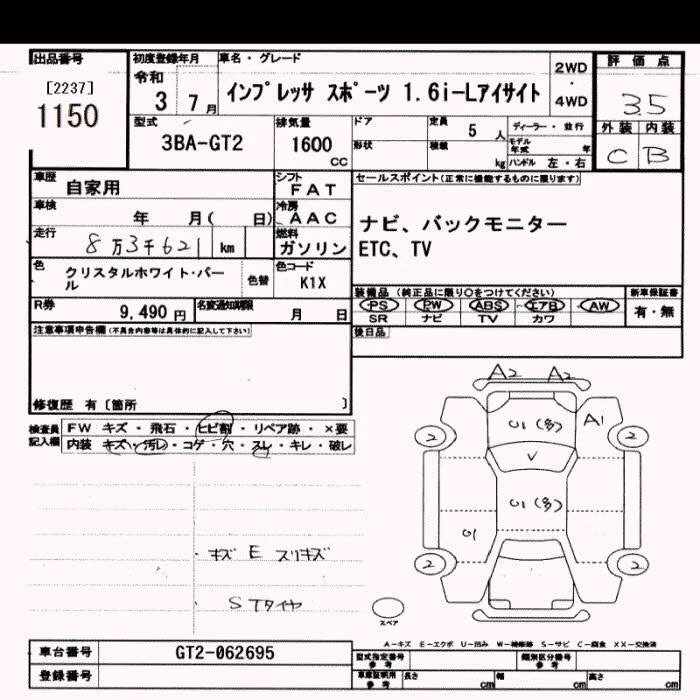 出品番号
[2237]
1150
初度登録年月
令和
3 7月
車名・グレード
インプレッサ スポーツ 1.6i-Lアイサイト
2WD
・
4WD
評価点
3.5
外装 内装
C B
型式
3BA-GT2
排気量
1600
CC
ドア
形状
定員
5 人
積載
kg
ディーラー・並行
モデル年式 年
ハンドル 左・右
車歴
自家用
シフト
FAT
セールスポイント(正常に機能するものに限ります)
車検
年 月( 日)
冷房
AAC
ナビ、バックモニター
ETC、TV
走行
8万3千621 km
燃料
ガソリン
色
クリスタルホワイト・パール
色替
色コード
K1X
装備品 (純正品に限り○をつけてください)
PS PW ABS エアB AW
SR ナビ TV カワ
新車保証書
有・無
R券
9,490 円
名変通知期限
月 日
後日品
注意事項申告欄(不具合内容等は具体的に記入して下さい)
修復歴 有〔箇所 〕
検査員
記入欄
FW キズ・飛石・ヒビ割・リペア跡・×要
内装 キズ・汚レ・コゲ・穴・スレ・キレ・破レ
A2 A2
U1(多) A1
2 2
V
U1(多)
U1
2 2
キズ E スリキズ
Sタイヤ
スペア
A-キズ E-エクボ U-凹み W-補修跡 S-サビ C-腐食 XX-交換済
車台番号
GT2-062695
登録番号
型式指定番号
参考
類別区分番号
参考
車庫証明用
参考
長さ cm
幅 cm
高さ cm